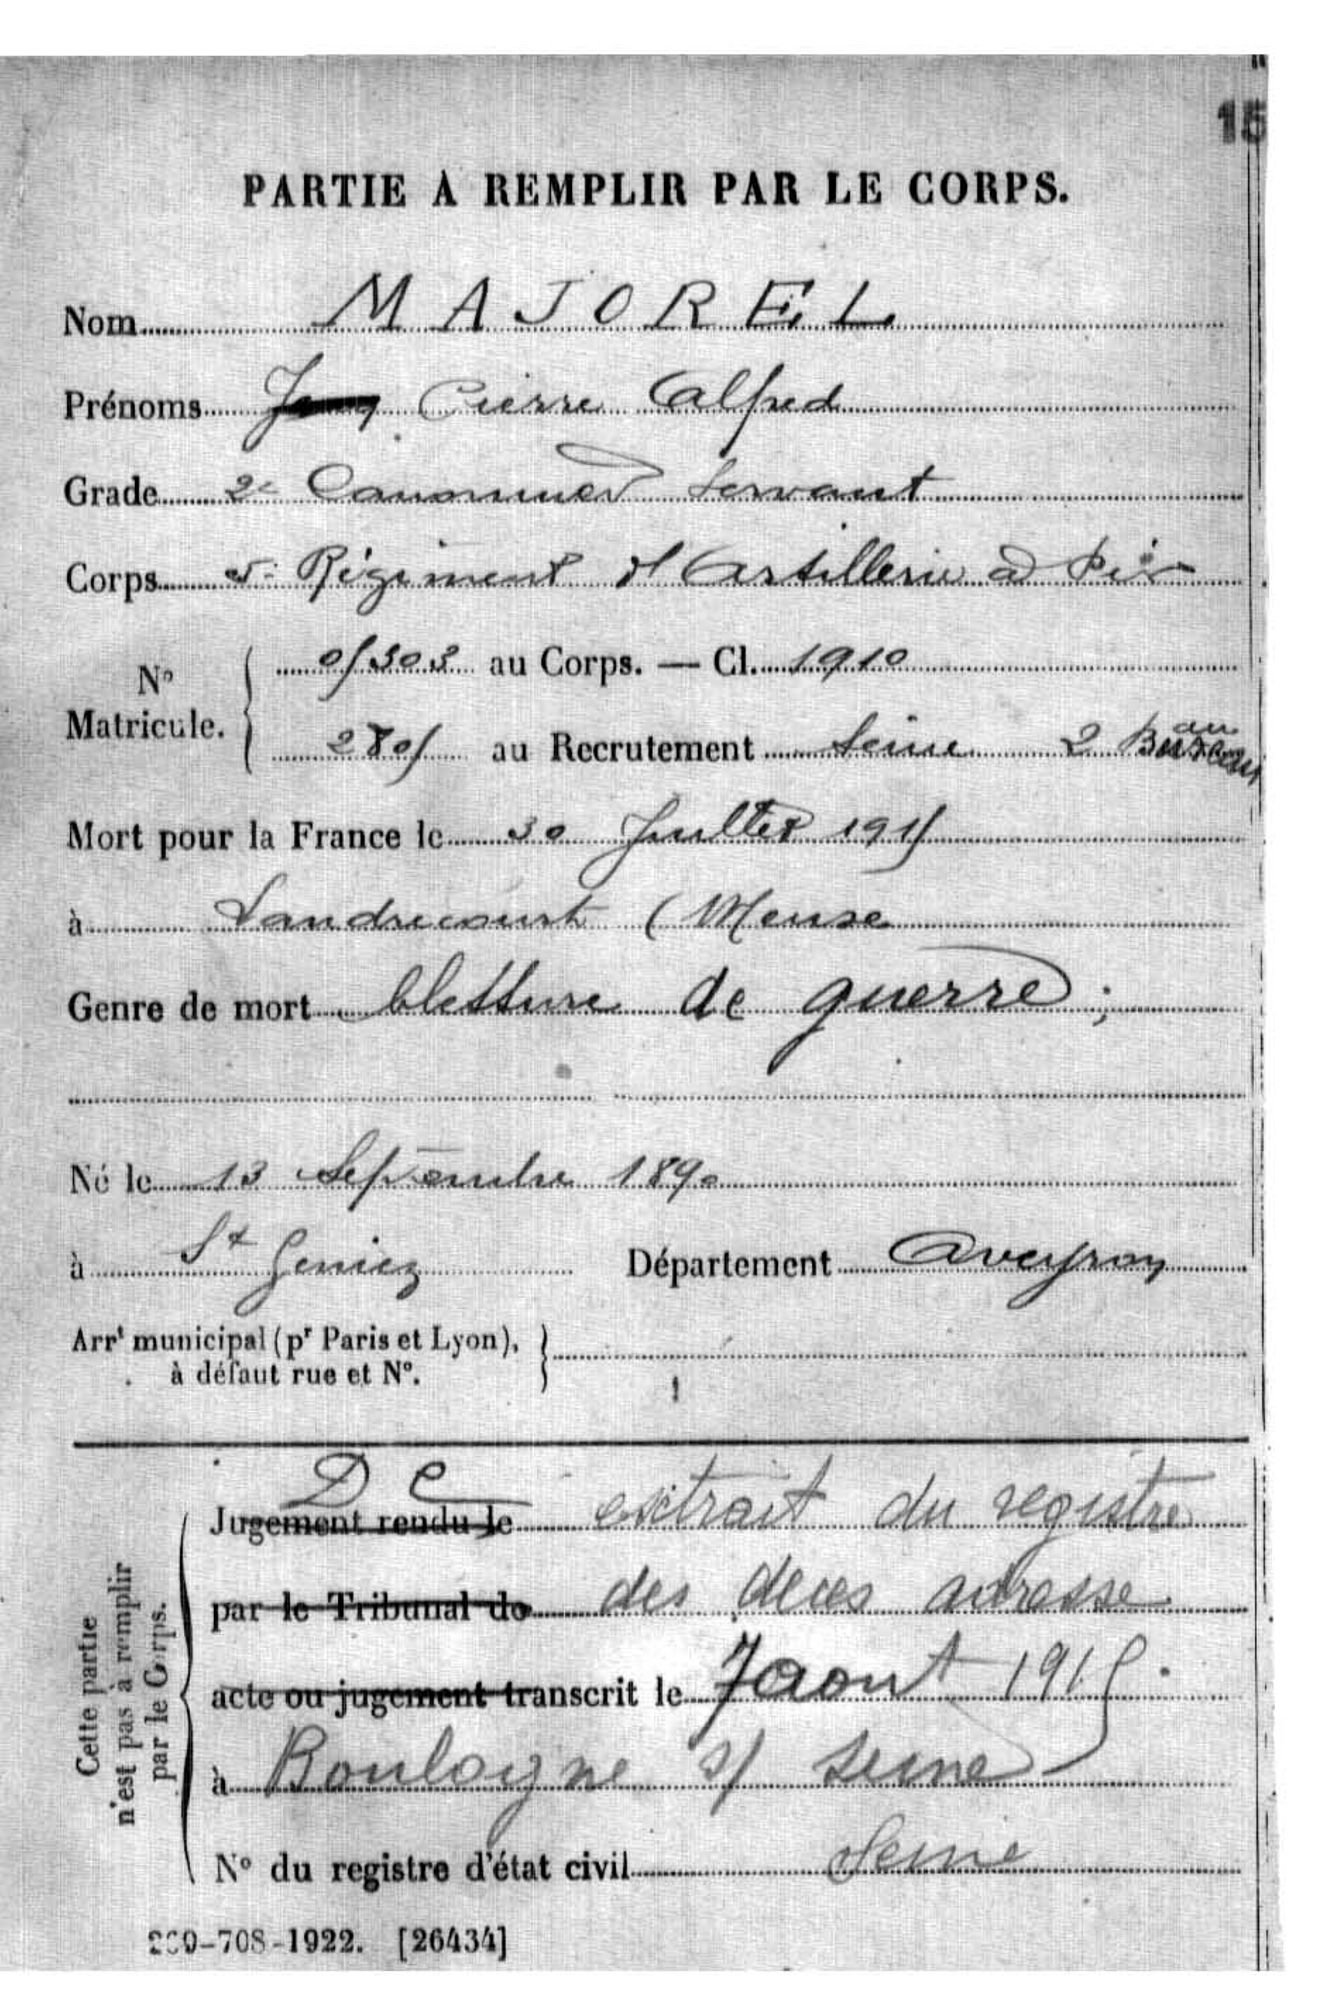 15
PARTIE A REMPLIR PAR LE CORPS.
Nom MAJOREL
Prénoms Pierre Alfred
Grade 2e Canonnier Servant
Corps 5e Régiment d'Artillerie à Pied
No Matricule. 0/303 au Corps. — Cl. 1910
2805 au Recrutement Seine 2 Bureau
Mort pour la France le 30 Juillet 1915
à Landrecourt (Meuse
Genre de mort blessure de guerre ;
Né le 13 Septembre 1890
à St Geniez Département Aveyron
Arrt municipal (pr Paris et Lyon),
à défaut rue et No.
Cette partie
n'est pas à remplir
par le Corps.
Jugement rendu le extrait du registre
par le Tribunal de des deces adresse
acte ou jugement transcrit le 7 aout 1915.
à Boulogne s/ Seine
No du registre d'état civil Seine
-708-1922. [26434]